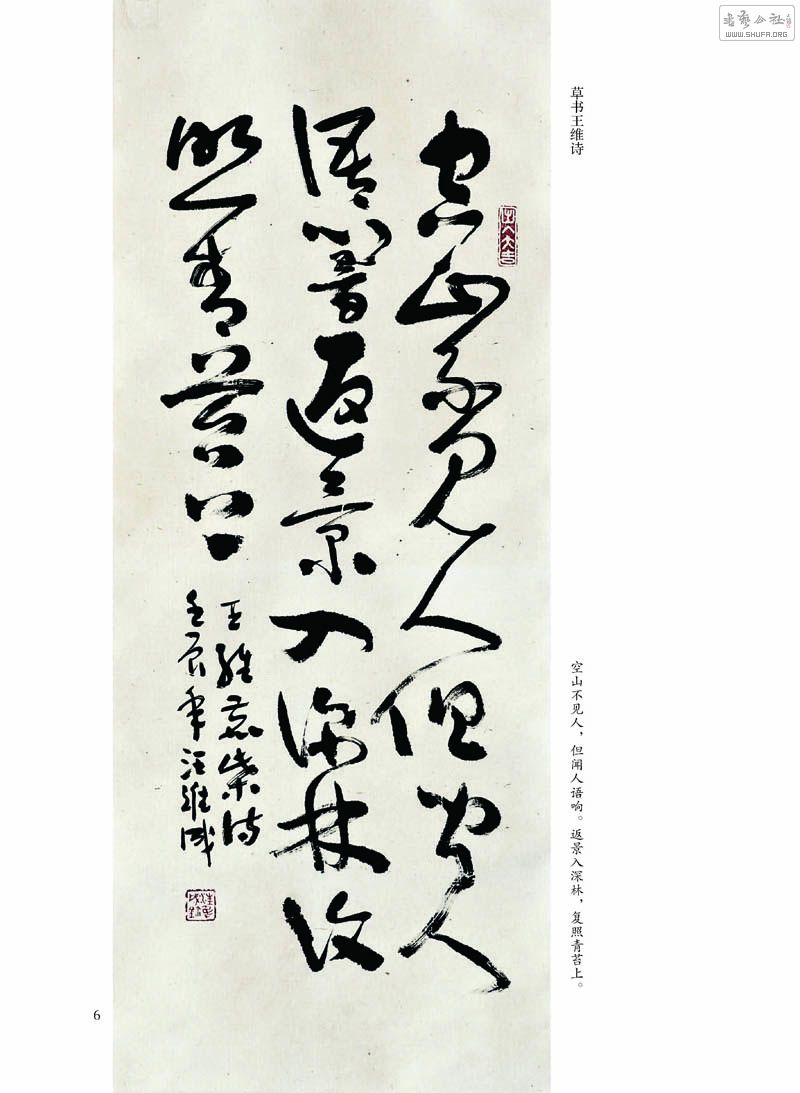 書藝公社
WWW.SHUFA.ORG
草书王维诗
空山不見人但聞人
語響返景入深林復
照青苔上
王維鹿柴詩
壬辰年汪維成
空山不见人，但闻人语响。返景入深林，复照青苔上。
6